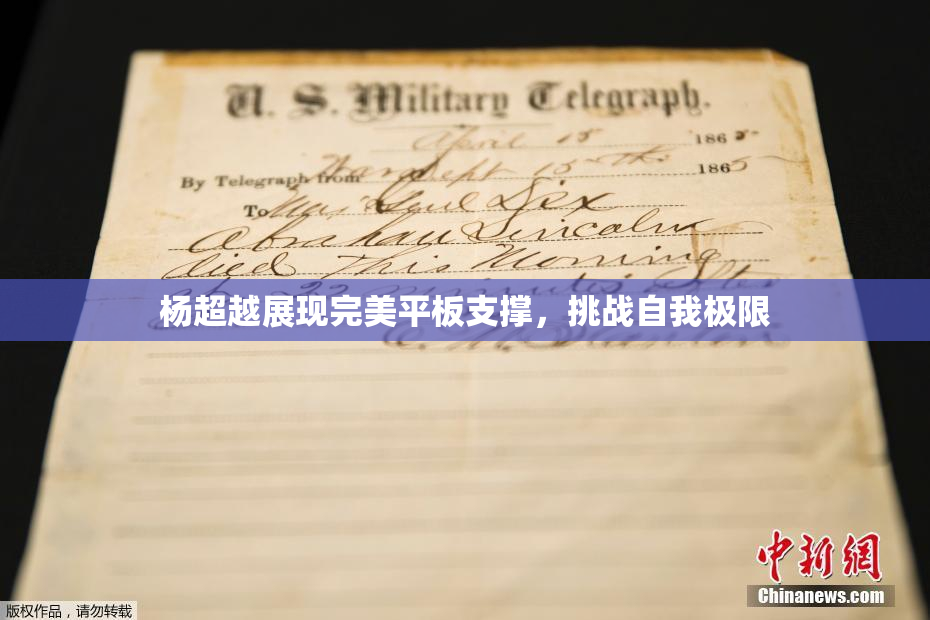 U. S. Military Telegraph.
April 15 1865
By Telegraph from War Dept 15th 1865
To Maj Genl Dix
Abraham Lincoln
died This Morning
at 22 minutes after
杨超越展现完美平板支撑，挑战自我极限
E. M. Stanton
中新网
Chinanews.com
版权作品，请勿转载